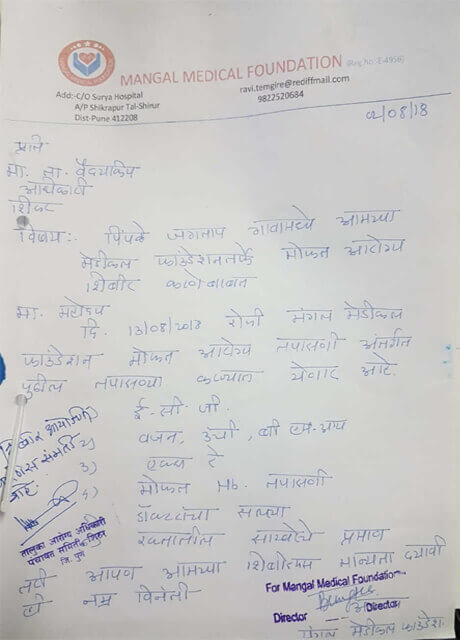 MANGAL MEDICAL FOUNDATION (Reg.No.-E-4956)
Add:-C/O Surya Hospital
A/P Shikrapur Tal-Shirur
Dist-Pune 412208
ravi.temgire@rediffmail.com
9822520684
02/08/18
प्रति
मा. ता. वैद्यकीय
अधिकारी
शिरूर
विषय:- पिंपळे जगताप गावामध्ये आमच्या
मेडीकल फाउंडेशनतर्फे मोफत आरोग्य
शिबीर करणेबाबत
मा. महोदय
दि. 13/08/2018 रोजी मंगल मेडीकल
फाउंडेशन मोफत आरोग्य तपासणी अंतर्गत
पुढील तपासण्या करण्यात येणार आहे.
ई-सी जी.
2) वजन, उंची, बी एम-आय
3) एक्स रे
4) मोफत Hb. तपासणी
डॉक्टरांचा सल्ला
रक्तातील साखरेचे प्रमाण
तरी आपण आमच्या शिबीरास मान्यता दयावी
ही नम्र विनंती
शिबीर
संमती
आहे.
तालुका आरोग्य अधिकारी
पंचायत समिती, शिरूर
जि. पुणे
For Mangal Medical Foundation
Director Director
मंगल मेडीकल फाउंडेशन